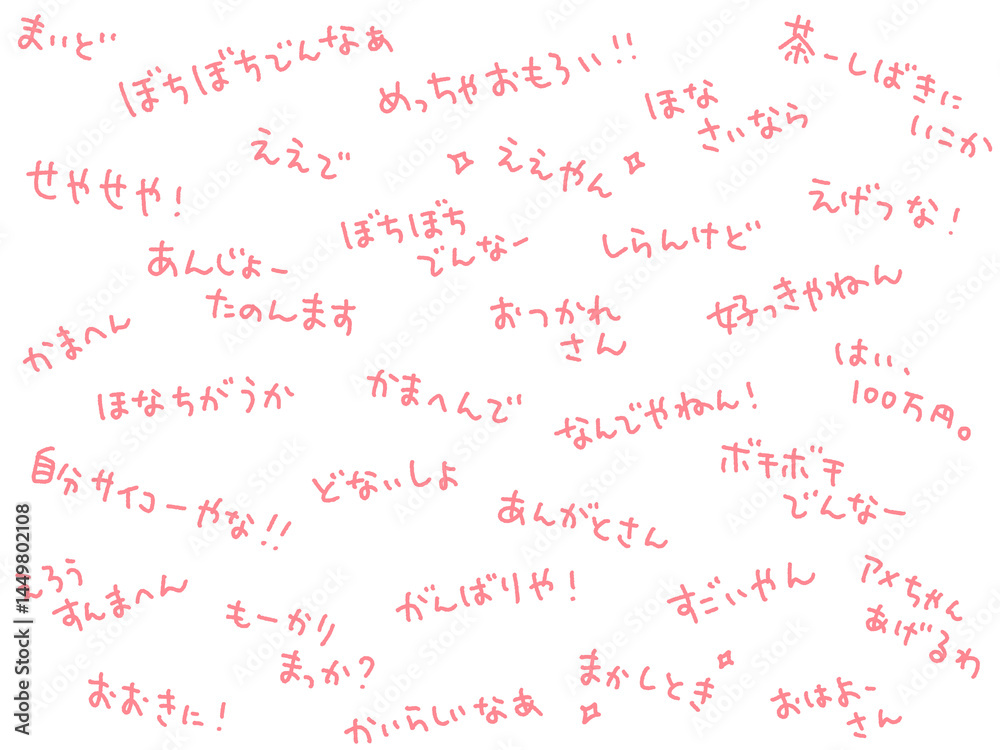 まいど
ぼちぼちでんなぁ
めっちゃおもろい!!
茶ーしばきに
いこか
ほな
さいなら
ええで
ええやん
せやせや!
えげつな!
ぼちぼち
でんなー
しらんけど
あんじょー
たのんます
おつかれ
さん
好っきやねん
かまへん
はい、
100万円。
ほなちがうか
かまへんで
なんでやねん!
自分サイコーやな!!
どないしよ
ボチボチ
でんなー
あんがとさん
えろう
すんまへん
もーかり
まっか?
がんばりや!
すごいやん
アメちゃん
あげるわ
おおきに!
かいらしいなあ
まかしとき
おはよー
さん
Adobe Stock | #1449802108